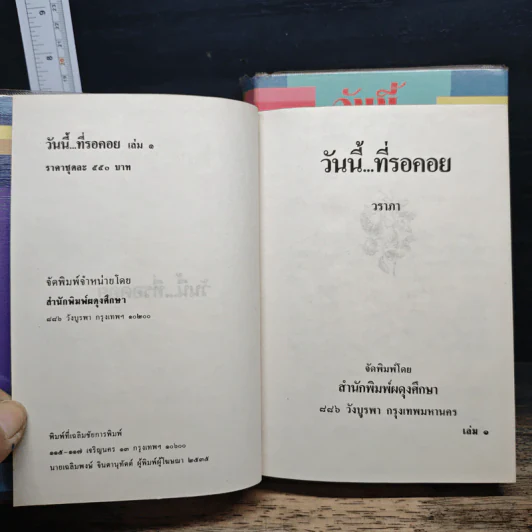 วันนี้...ที่รอคอย เล่ม ๑
ราคาชุดละ ๕๕๐ บาท
จัดพิมพ์จำหน่ายโดย
สำนักพิมพ์ผดุงศึกษา
๘๘๖ วังบูรพา กรุงเทพฯ ๑๐๒๐๐
พิมพ์ที่เฉลิมชัยการพิมพ์
๑๑๕-๑๑๗ เจริญนคร ๑๓ กรุงเทพฯ ๑๐๖๐๐
นายเฉลิมพงษ์ จินดานุทัตต์ ผู้พิมพ์ผู้โฆษณา ๒๕๓๕
วันนี้
วันนี้...ที่รอคอย
วราภา
จัดพิมพ์โดย
สำนักพิมพ์ผดุงศึกษา
๘๘๖ วังบูรพา กรุงเทพมหานคร
เล่ม ๑